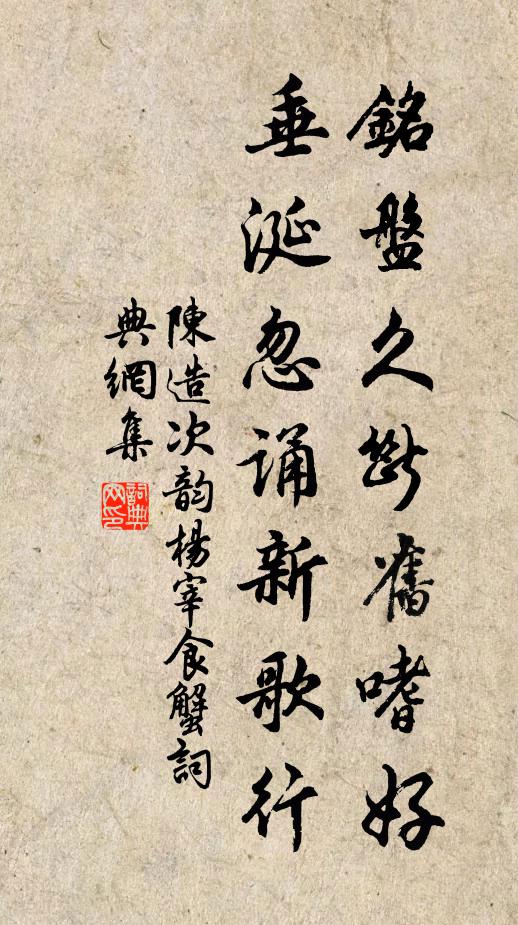 銘盤久斷舊嗜好
垂涎忽誦新歌行
陳造次韵楊宰食蟹詞
典網集
詞典网印